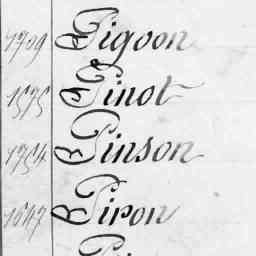 1709 Pigoon
1575 Pinot
1754 Pinson
1647 Piron